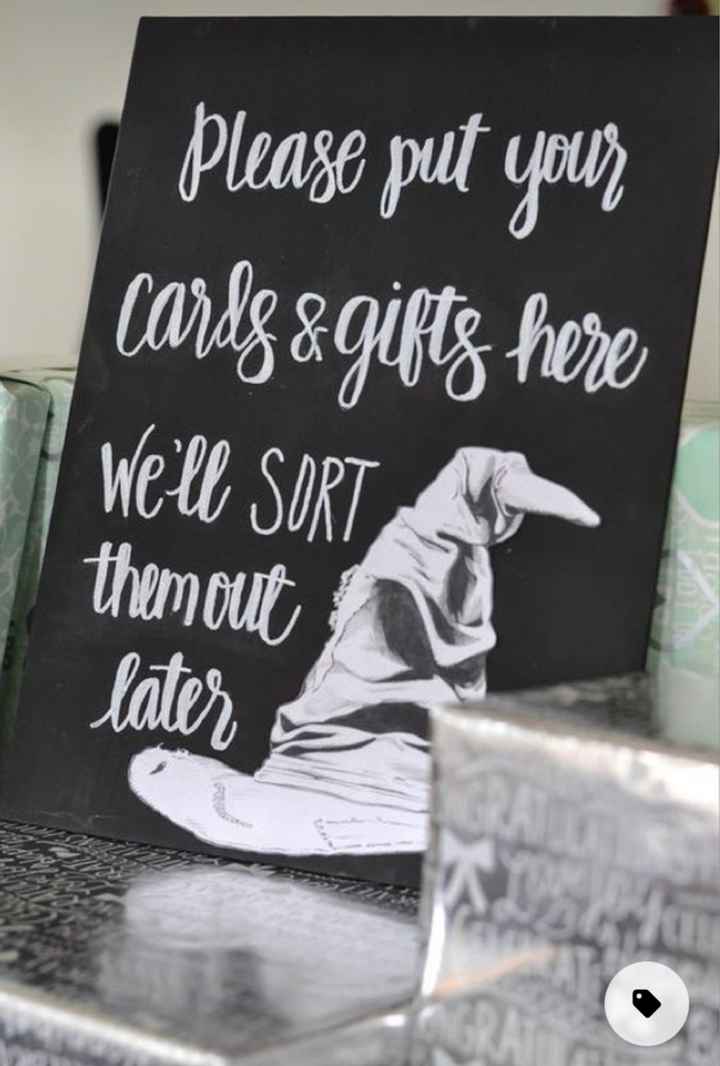 Please put your
cards & gifts here
We'll SORT
them out
later